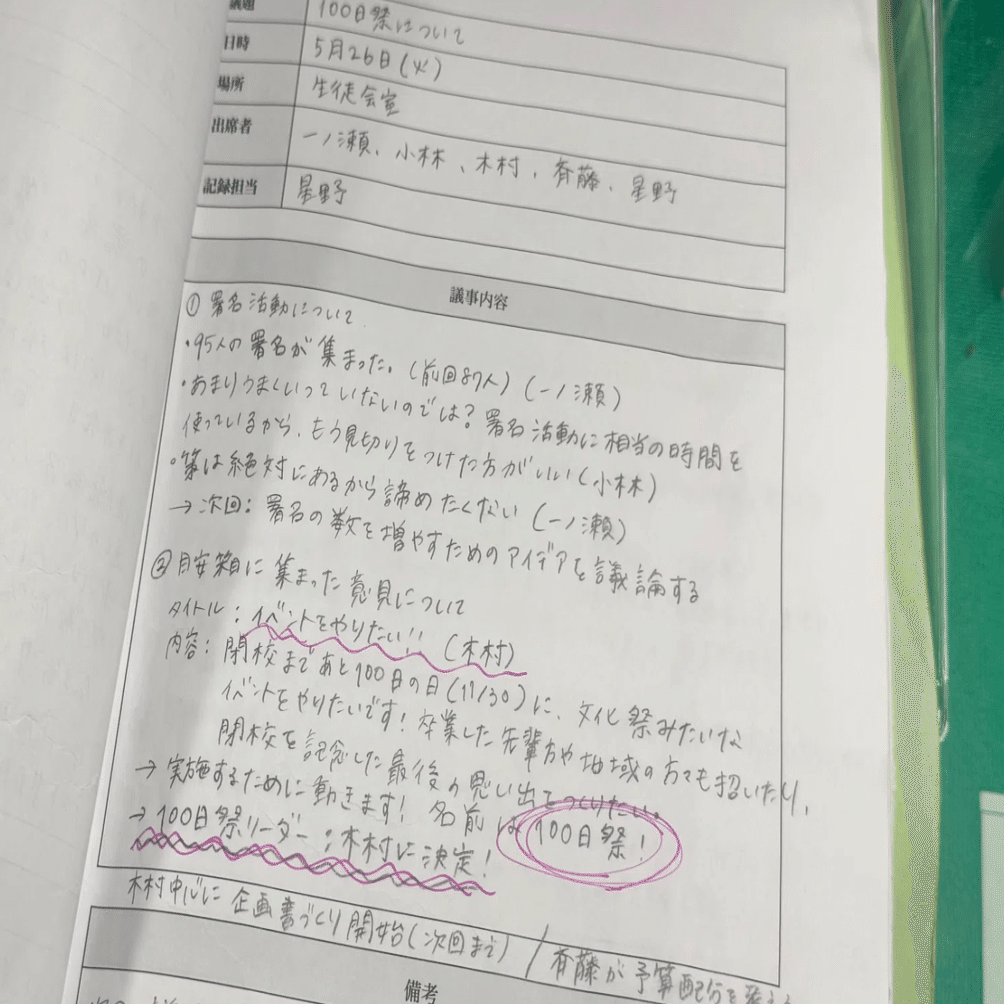 議題 100日祭について
日時 5月26日(火)
場所 生徒会室
出席者 一ノ瀬、小林、木村、斉藤、星野
記録担当 星野
議事内容
① 署名活動について
・95人の署名が集まった。(前回87人)(一ノ瀬)
・あまりうまくいっていないのでは?署名活動に相当の時間を
使っているから、もう見切りをつけた方がいい(小林)
・策は絶対にあるから諦めたくない(一ノ瀬)
→次回:署名の数を増やすためのアイデアを議論する
② 目安箱に集まった意見について
タイトル:イベントをやりたい!!(木村)
内容:閉校まであと100日の日(11/30)に、文化祭みたいな
イベントをやりたいです!卒業した先輩方や地域の方々も招いたり、
閉校を記念した最後の思い出をつくりたい。
→実施するために動きます!名前は100日祭!
→100日祭リーダー:木村に決定!
木村中心に企画書づくり開始(次回まで)/斉藤が予算配分を
備考